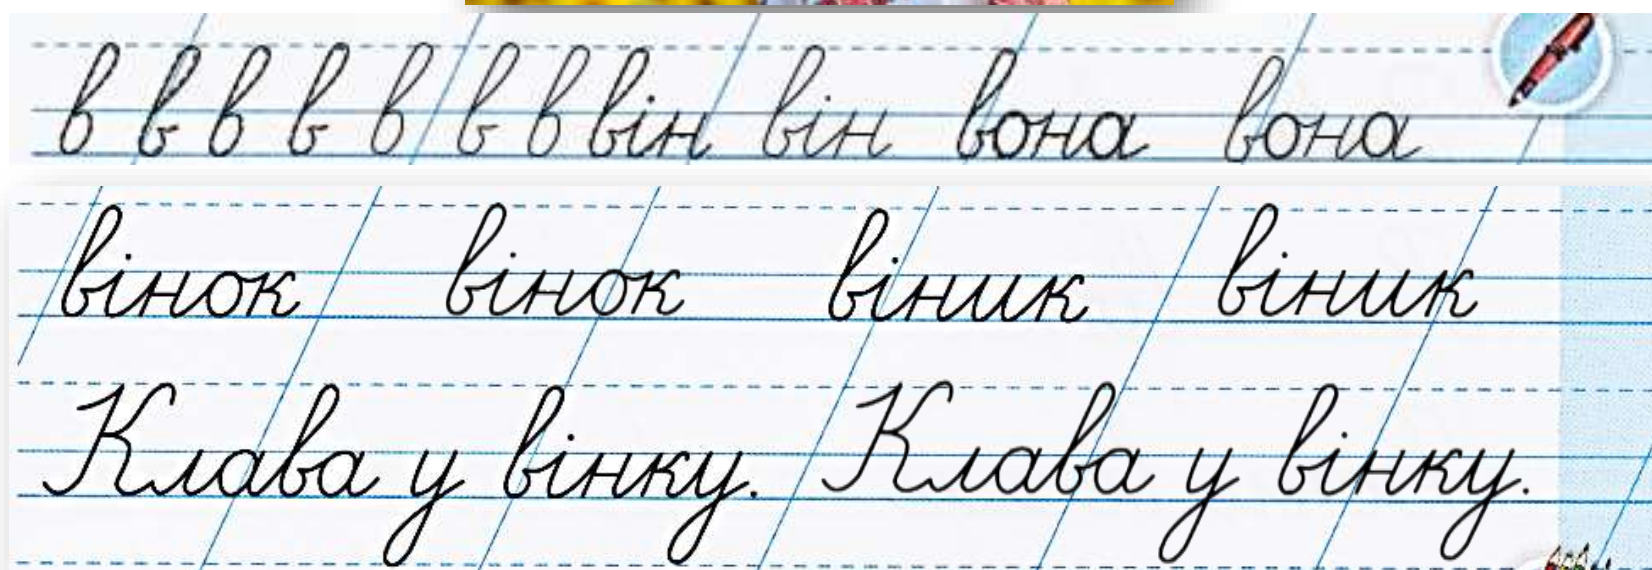 в в в в в в в він він вона вона
вінок вінок віник віник
Клава у вінку. Клава у вінку.